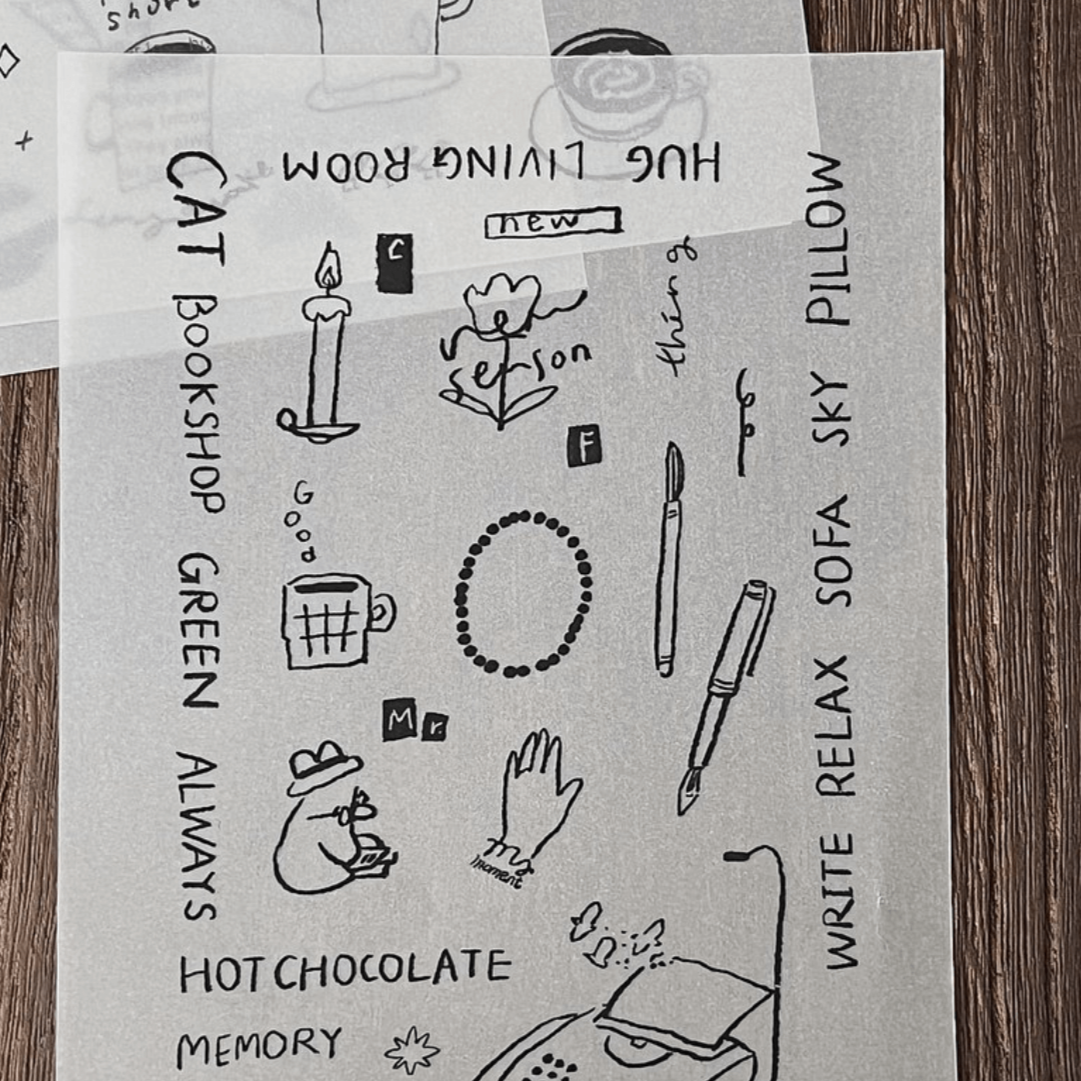 HUG LIVING ROOM
CAT BOOKSHOP GREEN ALWAYS
new
C
thing
erson
F
GOOD
Mr
my
moment
WRITE RELAX SOFA SKY PILLOW
HOT CHOCOLATE
MEMORY